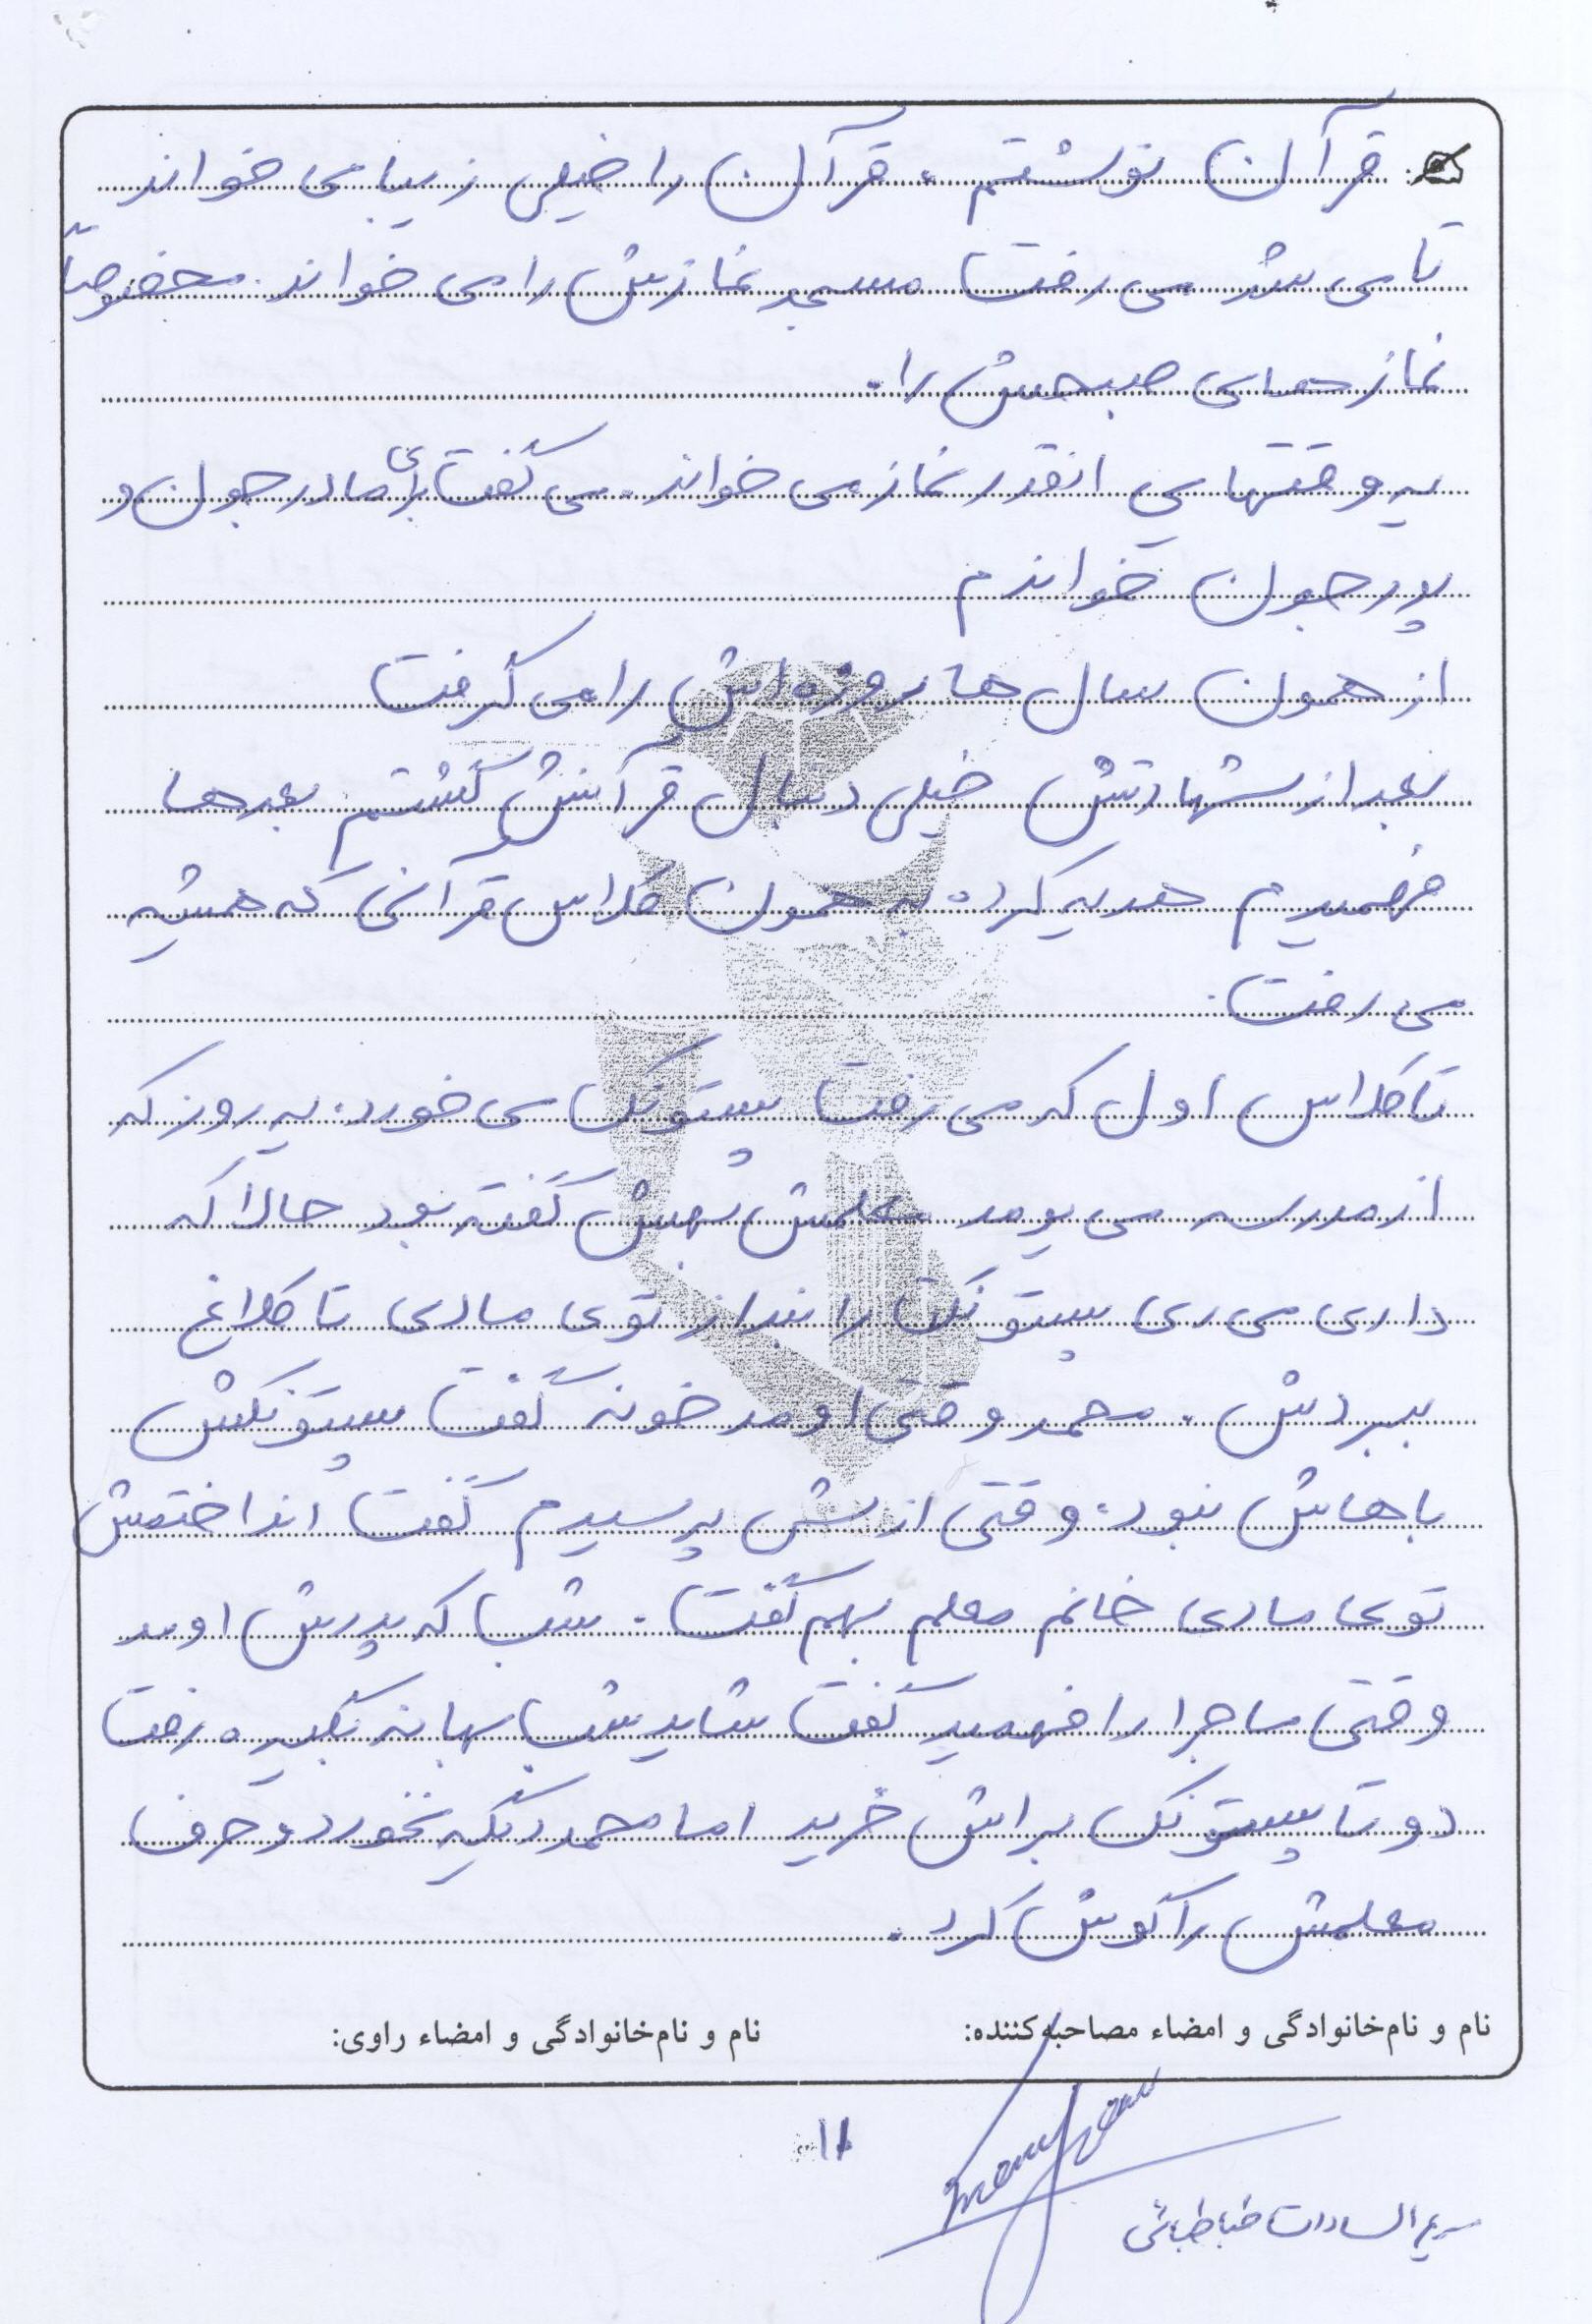 قرآن نوشتم. قرآن را خیلی زیبا می خواند
تا می شد می رفت مسجد نمازش را می خواند. مخصوصاً
نمازهای صبحش را.
یه وقتهایی انقدر نماز می خواند. می گفت برای مادر جون و
پدر جون خواندم
از همون سال ها روزه اش را می گرفت
بعد از شهادتش خیلی دنبال قرآنش گشتم بعدها
فهمیدم هدیه کرده به همون کلاس قرآنی که همیشه
می رفت.
تا کلاس اول که می رفت پستونک می خورد. یه روز که
از مدرسه می یومد معلمش بهش گفته بود حالا که
داری می ری پستونکت را بنداز توی مادی تا کلاغ
ببردش. محمد وقتی اومد خونه گفت پستونکش
باهاش نبود. وقتی ازش پرسیدم گفت انداختمش
توی مادی خانم معلم بهم گفت. شب که پدرش اومد
وقتی ماجرا را فهمید گفت شاید شب بهانه بگیره رفت
دو تا پستونک براش خرید اما محمد دیگه نخورد و حرف
معلمش را گوش کرد.
نام و نام‌خانوادگی و امضاء مصاحبه‌کننده: نام و نام‌خانوادگی و امضاء راوی:
۱۱
مریم السادات طباطبائی